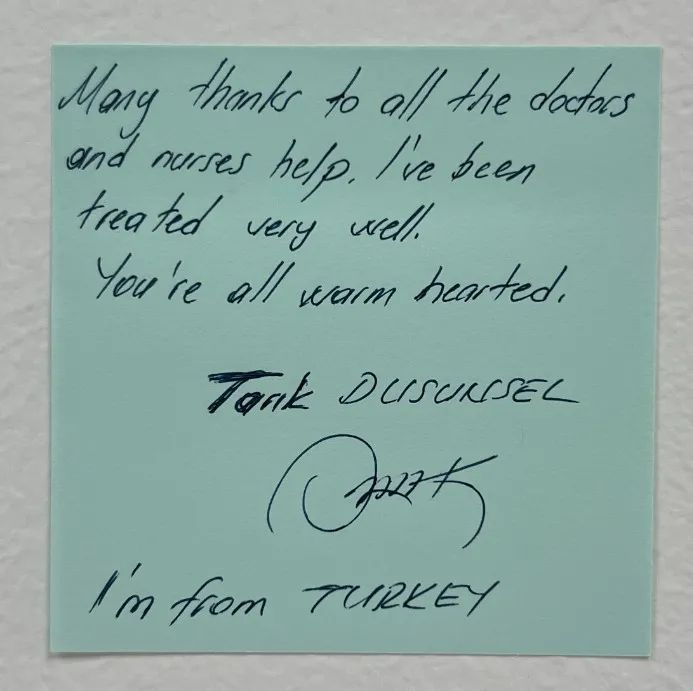 Many thanks to all the doctors
and nurses help. I've been
treated very well.
You're all warm hearted.
Tarık DUSUNSEL
I'm from TURKEY